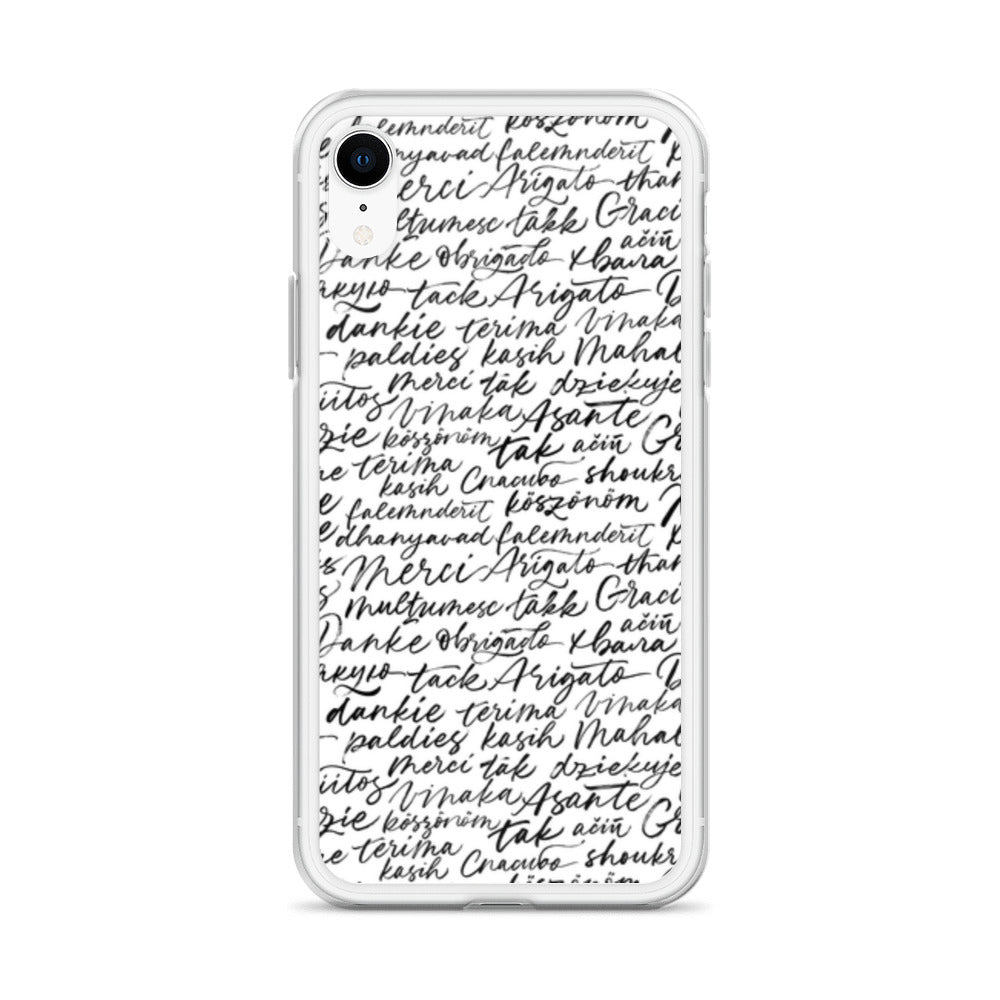 falemnderit köszönöm
dhanyavad falemnderit
Merci Arigato than
multumesc takk Graci
Danke Obrigado хвала ačiū
акую tack Arigato
dankie terima vinaka
paldies kasih Mahal
iitos merci tāk dziekuje
vinaka Asante
zie köszönöm tak ačiū Gr
terima kasih Спасибо shoukr
falemnderit köszönöm
dhanyavad falemnderit
Merci Arigato than
multumesc takk Graci
Danke Obrigado хвала ačiū
акую tack Arigato
dankie terima vinaka
paldies kasih Mahal
iitos merci tāk dziekuje
vinaka Asante
zie köszönöm tak ačiū Gr
terima kasih Спасибо shoukr
köszönöm